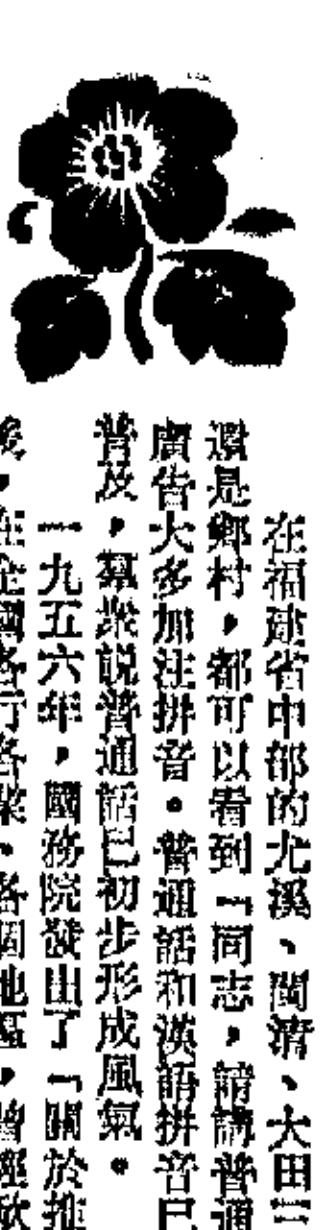 在福建省中部的尤溪、閩清、大田三
還是鄉村，都可以看到「同志，請講普通
廣告大多加注拼音。普通話和漢語拼音已
普及，羣衆説普通話已初步形成風氣。
一九五六年，國務院發出了「關於推
，在全國各行各業、各個地區，曾經